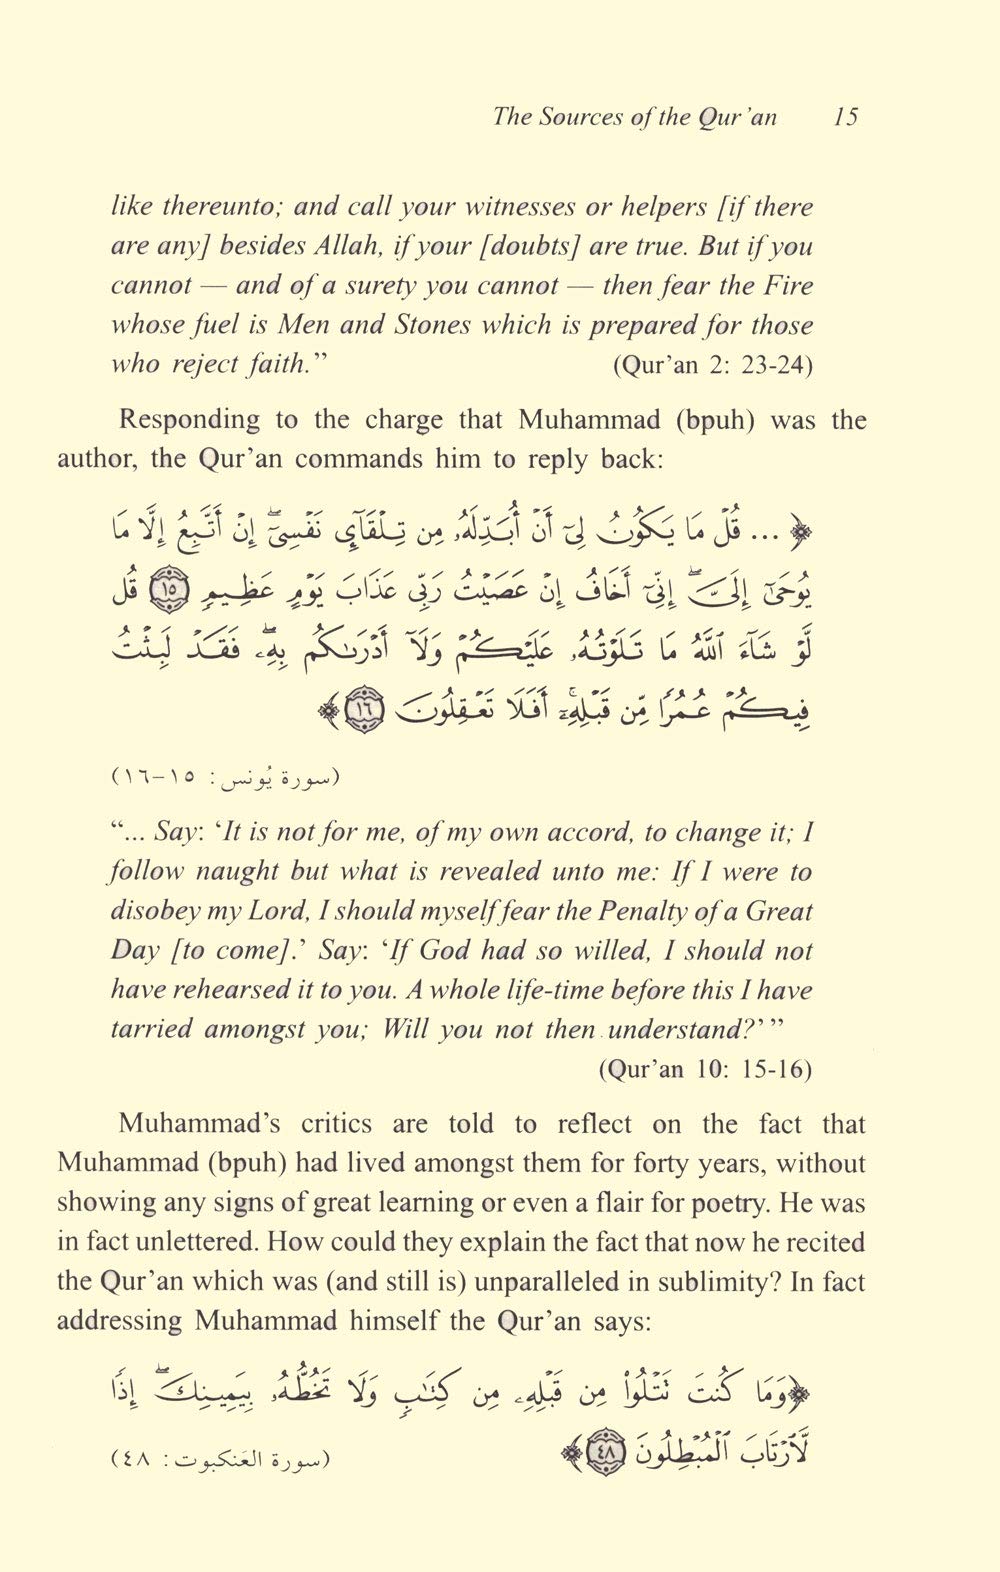 The Sources of the Qur'an 15
like thereunto; and call your witnesses or helpers [if there
are any] besides Allah, if your [doubts] are true. But if you
cannot — and of a surety you cannot — then fear the Fire
whose fuel is Men and Stones which is prepared for those
who reject faith.” (Qur'an 2: 23-24)
Responding to the charge that Muhammad (bpuh) was the
author, the Qur'an commands him to reply back:
﴿... قُلْ مَا يَكُونُ لِىٓ أَنْ أُبَدِّلَهُۥ مِن تِلْقَآئِ نَفْسِىٓ ۖ إِنْ أَتَّبِعُ إِلَّا مَا
يُوحَىٰٓ إِلَىَّ ۖ إِنِّىٓ أَخَافُ إِنْ عَصَيْتُ رَبِّى عَذَابَ يَوْمٍ عَظِيمٍ ١٥ قُل
لَّوْ شَآءَ ٱللَّهُ مَا تَلَوْتُهُۥ عَلَيْكُمْ وَلَآ أَدْرَىٰكُم بِهِۦ ۖ فَقَدْ لَبِثْتُ
فِيكُمْ عُمُرًا مِّن قَبْلِهِۦٓ ۚ أَفَلَا تَعْقِلُونَ ١٦﴾
(سورة يُونس: ١٥-١٦)
“... Say: ‘It is not for me, of my own accord, to change it; I
follow naught but what is revealed unto me: If I were to
disobey my Lord, I should myself fear the Penalty of a Great
Day [to come].’ Say: ‘If God had so willed, I should not
have rehearsed it to you. A whole life-time before this I have
tarried amongst you; Will you not then understand?’ ”
(Qur'an 10: 15-16)
Muhammad's critics are told to reflect on the fact that
Muhammad (bpuh) had lived amongst them for forty years, without
showing any signs of great learning or even a flair for poetry. He was
in fact unlettered. How could they explain the fact that now he recited
the Qur'an which was (and still is) unparalleled in sublimity? In fact
addressing Muhammad himself the Qur'an says:
﴿وَمَا كُنتَ تَتْلُوا۟ مِن قَبْلِهِۦ مِن كِتَٰبٍ وَلَا تَخُطُّهُۥ بِيَمِينِكَ ۖ إِذًا
لَّٱرْتَابَ ٱلْمُبْطِلُونَ ٤٨﴾ (سورة العَنكبوت: ٤٨)